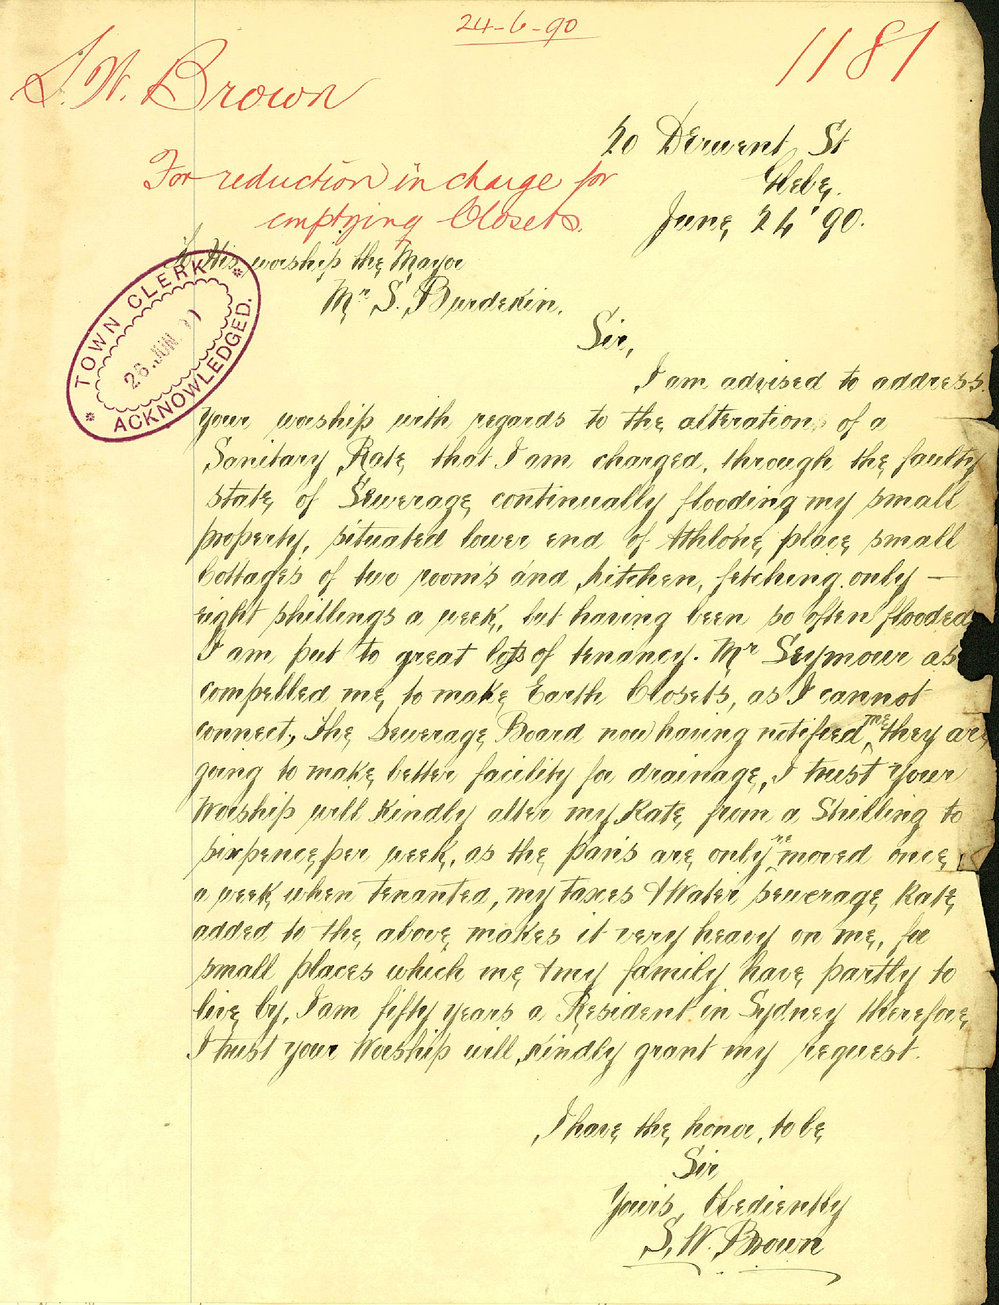 24-6-90
1181
S. W. Brown
For reduction in charge for
emptying Closets.
20 Derwent St
Glebe,
June 24' 90.
To His worship the Mayor
Mr S. Burdekin.
TOWN CLERK
26 JUN. 90
ACKNOWLEDGED.
Sir,
I am advised to address
your worship with regards to the alteration of a
Sanitary Rate that I am charged, through the faulty
state of Sewerage continually flooding my small
property, situated lower end of Athlone place small
Cottages of two room's and kitchen, fetching only —
eight shillings a week, but having been so often flooded
I am put to great loss of tenancy. Mr Seymour as
compelled me to make Earth Closets, as I cannot
connect, The Sewerage Board now having notified me they are
going to make better facility for drainage, I trust your
Worship will kindly alter my Rate from a Shilling to
sixpence per week, as the pans are only removed once
a week when tenanted, my taxes & Water Sewerage Rate
added to the above makes it very heavy on me, for
small places which me & my family have partly to
live by, I am fifty years a Resident in Sydney therefore
I trust your Worship will kindly grant my request.
I have the honor, to be
Sir
Yours Obediently
S. W. Brown